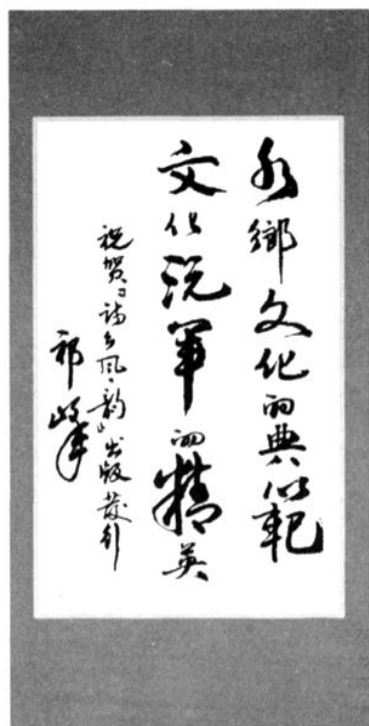 水鄉文化的典範
文化軍的精英
祝贺《詩乡风韵》出版發行
祁峰